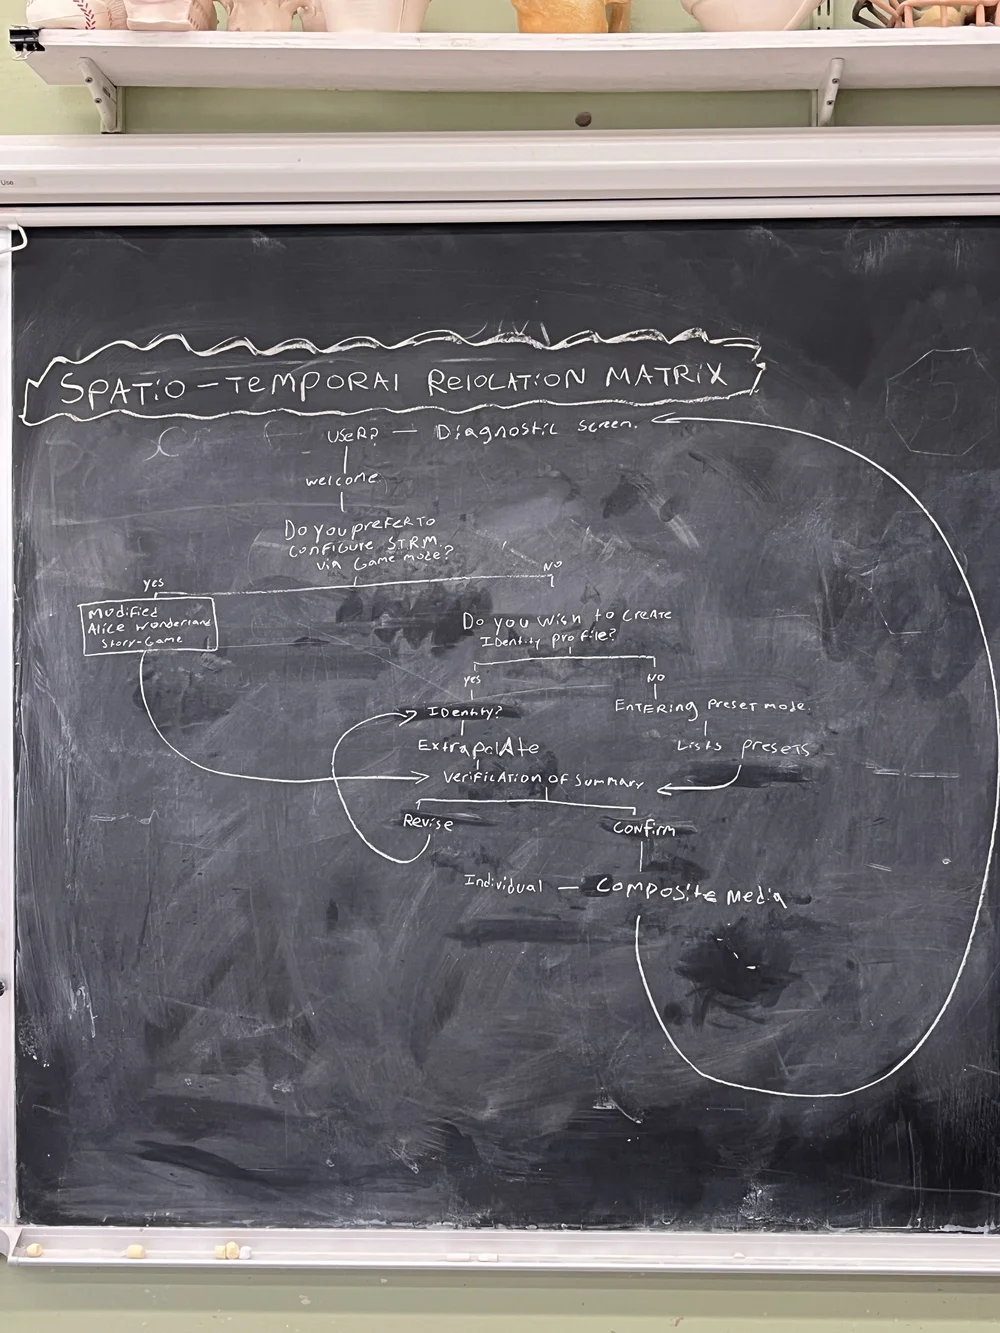 Use
SPATIO-TEMPORAL RELOCATION MATRIX
USER? — Diagnostic screen.
welcome
Do you prefer to
configure S.T.R.M.
via Game mode?
yes
NO
Modified
Alice Wonderland
Story-Game
Do you wish to create
Identity profile?
yes
NO
Identity?
Entering preset mode.
Extrapolate
Lists presets
Verification of summary
Revise
Confirm
Individual — Composite Media